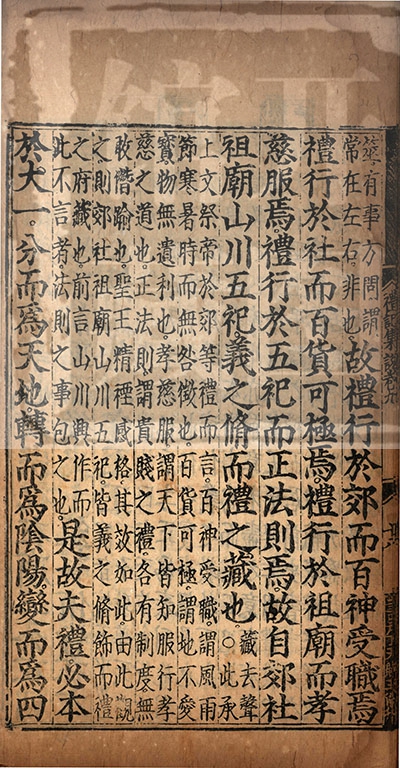 筮有事方問謂
常在左右。非也。故禮行於郊而百神受職焉。
禮行於社而百貨可極焉。禮行於祖廟而孝
慈服焉。禮行於五祀而正法則焉。故自郊社
祖廟山川五祀義之脩而禮之藏也。藏去聲
○此承
上文祭帝於郊等禮而言。百神受職謂風雨
節寒暑時而無咎徵也。百貨可極謂地不愛
寳物無遺利也。孝慈服謂天下皆知服行孝
慈之道也。正法則謂貴賤之禮。各有制度。無
敢僭踰也。聖王精禋感格。其效如此。由此觀
之則郊社祖廟山川五祀。皆義之脩飾而禮
之府藏也。前言山川興作而
此不言者。法則之事包之也。是故夫禮。必本
於大一。分而爲天地。轉而爲陰陽。變而爲四